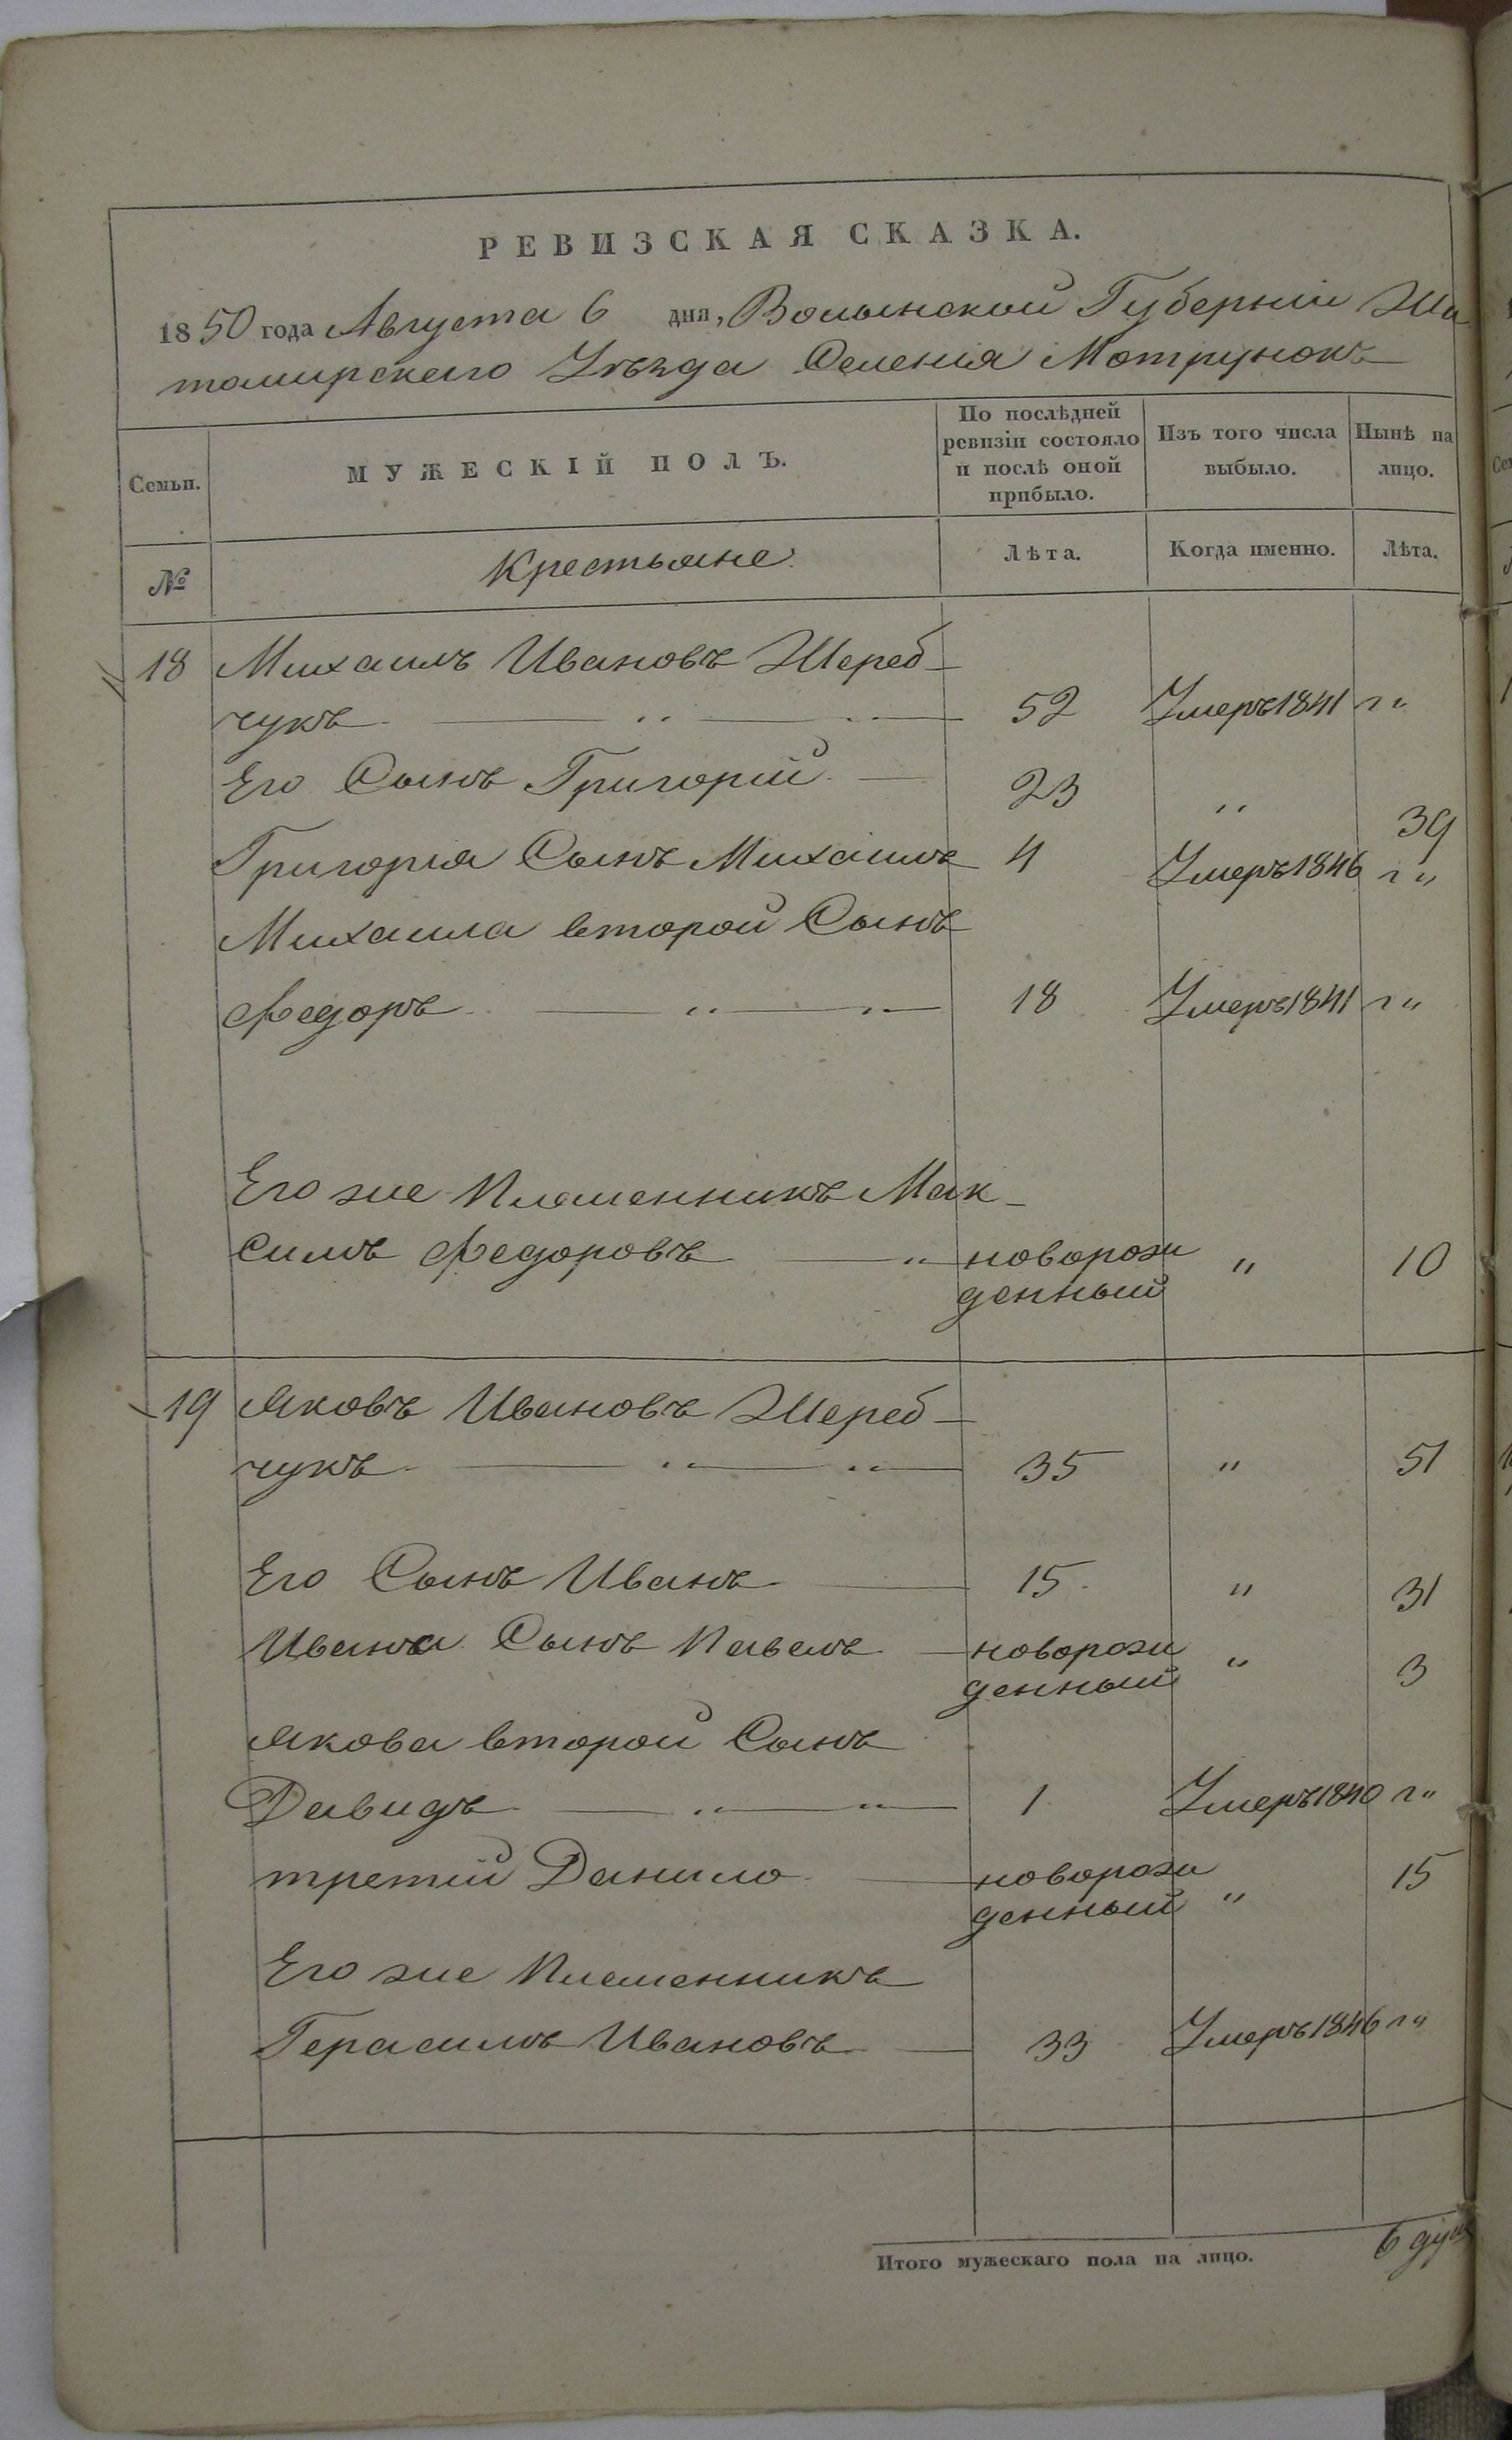 РЕВИЗСКАЯ СКАЗКА.
1850 года Августа 6 дня, Волынской Губерніи Жи
томирскаго Уѣзда Селенія Мотрунокъ
Семьи.
МУЖЕСКІЙ ПОЛЪ.
По послѣдней
ревизіи состояло
и послѣ оной
прибыло.
Изъ того числа
выбыло.
Нынѣ на
лицо.
№
Крестьяне.
Лѣта.
Когда именно.
Лѣта.
18 Михаилъ Ивановъ Жереб-
чукъ 52 Умеръ 1841 г"
Его Сынъ Григорій 23 " 39
Григорія Сынъ Михаилъ 4 Умеръ 1846 г"
Михаила второй Сынъ
Федоръ 18 Умеръ 1841 г"
Его же Племенникъ Мак-
симъ Федоровъ новорож
денный " 10
19 Яковъ Ивановъ Жереб-
чукъ 35 " 51
Его Сынъ Иванъ 15 " 31
Ивана Сынъ Павелъ новорож
денный " 3
Якова второй Сынъ
Давидъ 1 Умеръ 1840 г"
третій Данило новорож
денный " 15
Его же Племенникъ
Герасимъ Ивановъ 33 Умеръ 1846 г"
Итого мужескаго пола на лицо. 6 душ